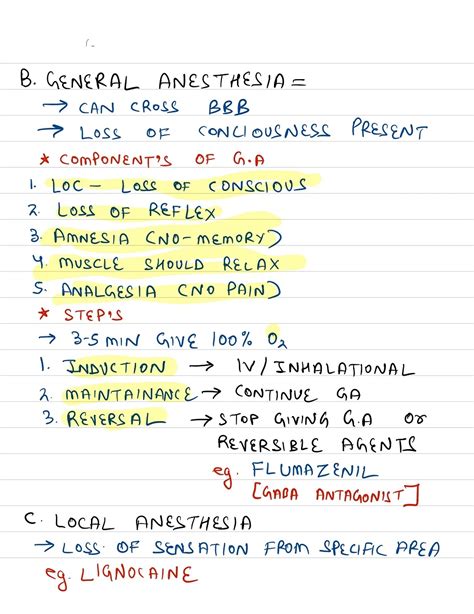 B. GENERAL ANESTHESIA =
→ CAN CROSS BBB
→ LOSS OF CONCIOUSNESS PRESENT
* COMPONENT'S OF G.A
1. LOC - LOSS OF CONSCIOUS
2. LOSS OF REFLEX
3. AMNESIA (NO-MEMORY)
4. MUSCLE SHOULD RELAX
5. ANALGESIA (NO PAIN)
* STEP'S
→ 3-5 MIN GIVE 100% O2
1. INDUCTION → IV/INHALATIONAL
2. MAINTAINANCE → CONTINUE GA
3. REVERSAL → STOP GIVING G.A or
REVERSIBLE AGENTS
eg. FLUMAZENIL
[GABA ANTAGONIST]
C. LOCAL ANESTHESIA
→ LOSS OF SENSATION FROM SPECIFIC AREA
eg. LIGNOCAINE